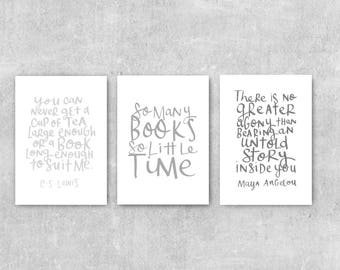 you can
never get a
cup of tea
large enough
or a book
long enough
to suit me.
C.S. Lewis
So Many
BOOKS
So Little
TIME
There is no
GREATER
agony than
BEARING an
UNTOLD
STORY
inside you
Maya Angelou